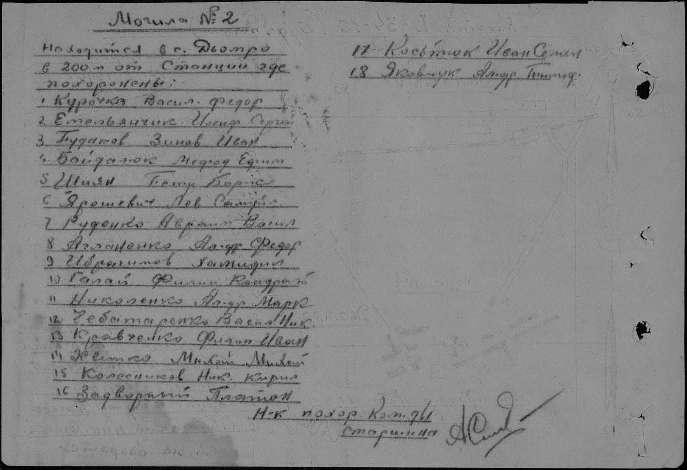 Могила № 2
Находится в с. Дьомро
в 200 м от Станции где
похоронены:
1 Курочка Васил. Федор
2 Емельянчик Иосиф Серг
3 Будаков Зинов Иван
4 Байдалюк Мефод Ефим
5 Шиян Петр Борис
6 Ярошевич Лев
7 Руденко Авраам Васил
8 Агланенко Алдр Федор
9 Ибрагимов
10 Галай Филип Кондрат
11 Николенко Алдр Марк
12 Чеботаренко Васил Ник.
13 Кравченко Филип Иван
14 Жетко Михай Михай
15 Колесников Ник. Кирил
16 Задворный Платон
17 Косьтюк Иван Семен
18 Яковчук Алдр
Н-к похор. Команды
старшина